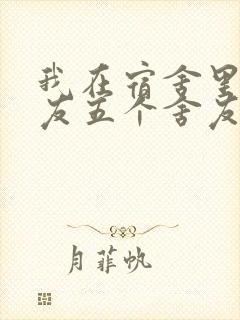 我在宿舍里
友五个舍友
月菲帆